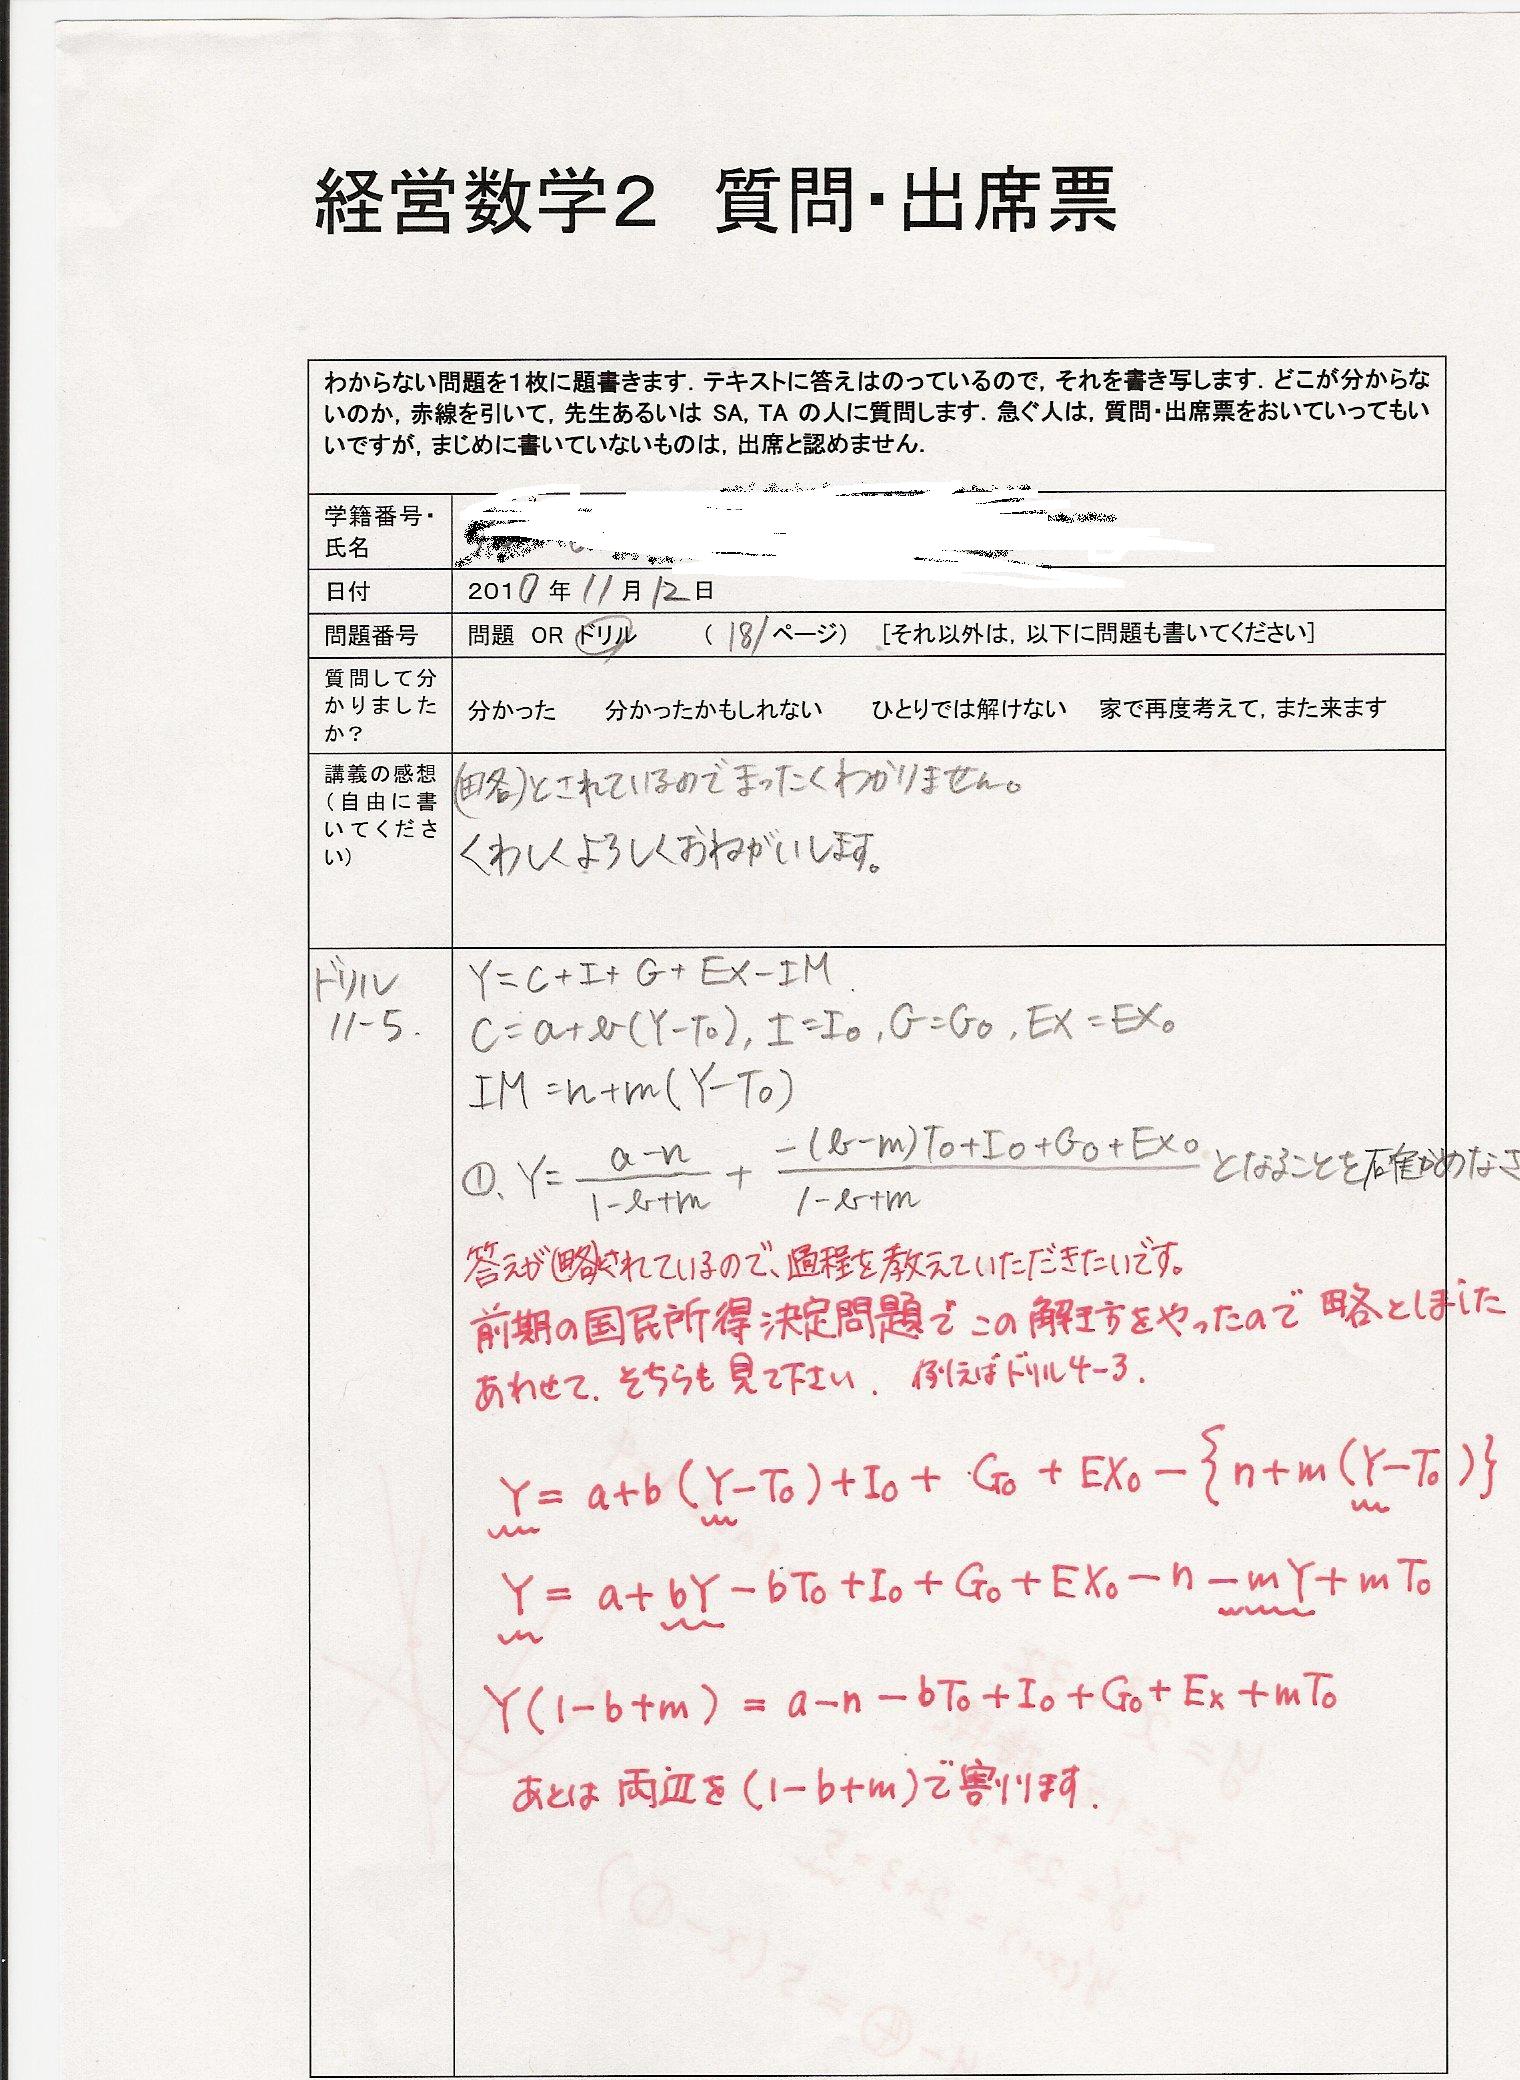 経営数学2 質問・出席票
わからない問題を1枚に題書きます. テキストに答えはのっているので, それを書き写します. どこが分からな
いのか, 赤線を引いて, 先生あるいは SA, TA の人に質問します. 急ぐ人は, 質問・出席票をおいていってもい
いですが, まじめに書いていないものは, 出席と認めません.
学籍番号・
氏名
日付
2010年11月12日
問題番号
問題 OR ドリル (181ページ) [それ以外は, 以下に問題も書いてください]
質問して分
かりました
か?
分かった 分かったかもしれない ひとりでは解けない 家で再度考えて, また来ます
講義の感想
(自由に書
いてくださ
い)
(略)とされているのでまったくわかりません。
くわしくよろしくおねがいします。
ドリル
11-5.
Y=C+I+G+EX-IM.
C=a+b(Y-T₀), I=I₀, G=G₀, EX=EX₀
IM=n+m(Y-T₀)
①、Y= (a-n)/(1-b+m) + (-(b-m)T₀+I₀+G₀+EX₀)/(1-b+m) となることを確かめなさ
答えが(略)されているので、過程を教えていただきたいです。
前期の国民所得決定問題で この解き方をやったので 略としました
あわせて. そちらも見て下さい. 例えばドリル4-3.
Y = a+b(Y-T₀)+I₀+G₀+EX₀-{n+m(Y-T₀)}
Y = a+bY-bT₀+I₀+G₀+EX₀-n-mY+mT₀
Y(1-b+m) = a-n-bT₀+I₀+G₀+Ex+mT₀
あとは両辺を(1-b+m)で割ります.